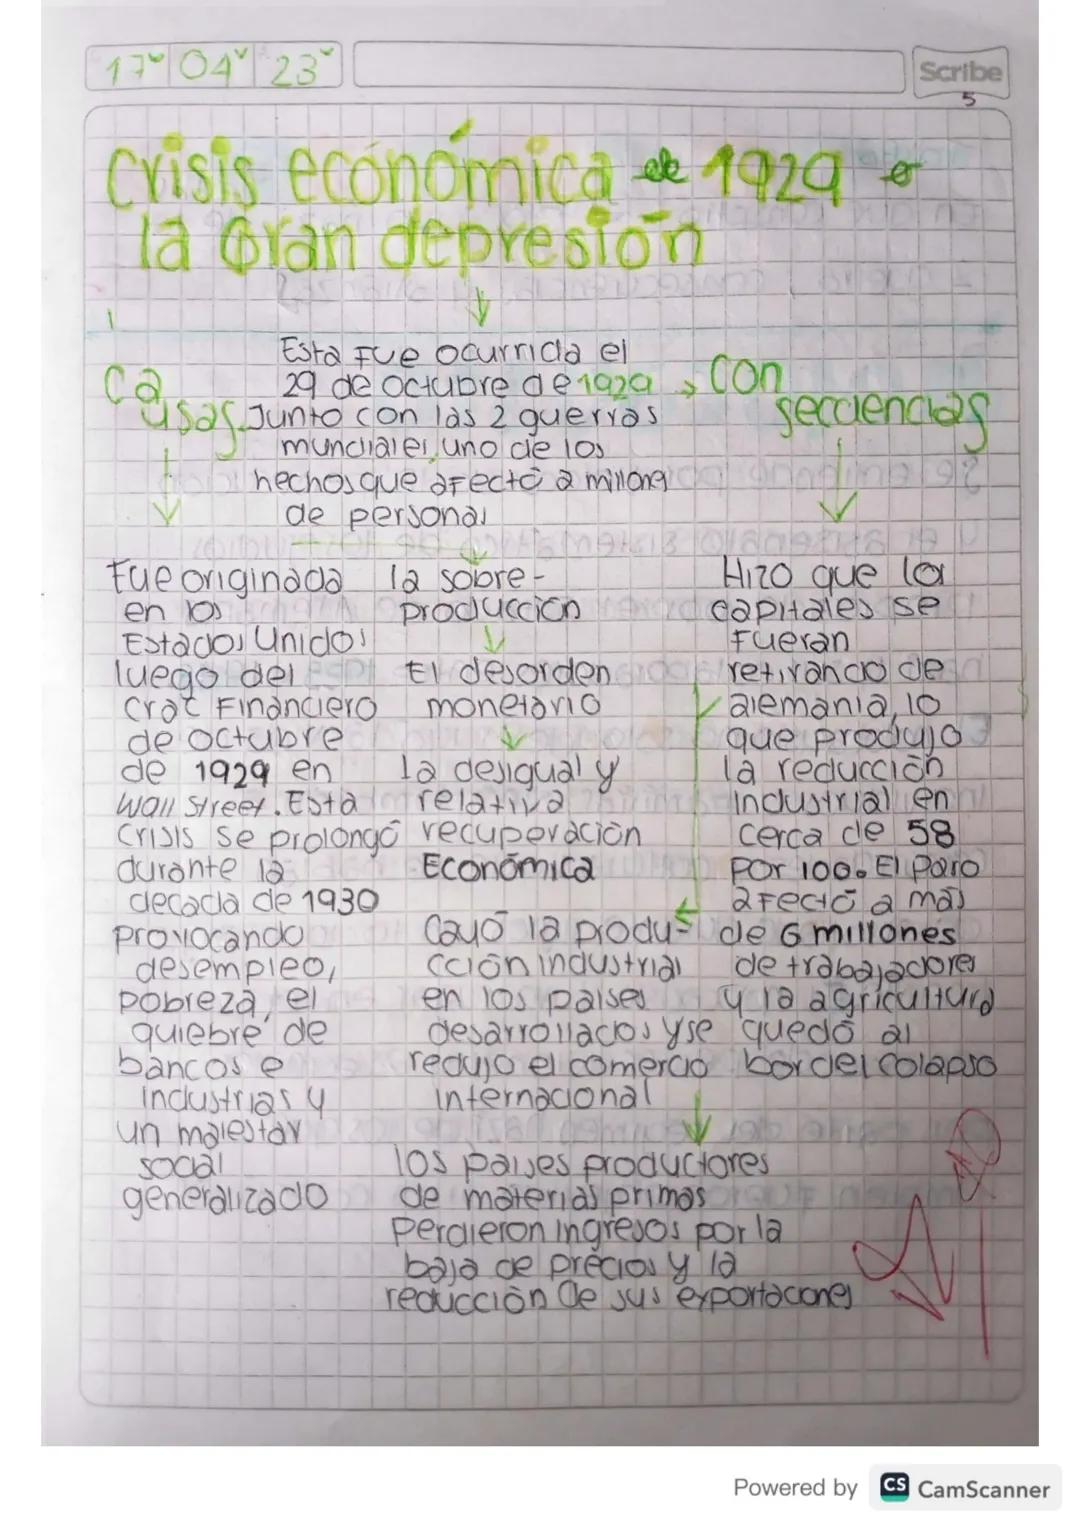 17 04 23
Scribe
5
Crisis económica de 1929 o
la Gran depresión
Esta fue ocurrida el
29 de octubre de 1929
Junto con las 2 guerras
mundiales, uno de los
hechos que afectó a millones
de personas
Causas
Fue originada
en los
Estados Unidos
luego del
crac Financiero
de octubre
de 1929 en
Wall Street. Esta
crisis se prolongó
durante la
decada de 1930
provocando
desempleo,
pobreza, el
quiebre de
bancos e
industrias y
un malestar
social
generalizado
la sobre-
producción
El desorden
monetario
la desigual y
relativa
recuperación
Económica
Cayó la produ-
cción industrial
en los paises
desarrollados y se
redujo el comercio
internacional
los paises productores
de materias primas
Perdieron ingresos por la
baja de precios y la
reducción de sus exportaciones
Con
secciencias
Hizo que los
capitales se
fueran
retirando de
alemania, lo
que produjo
la reducción
industrial en
cerca de 58
por 100. El paro
afectó a más
de 6 millones
de trabajadores
y la agricultura
quedó al
bor del colapso
Powered by CS CamScanner